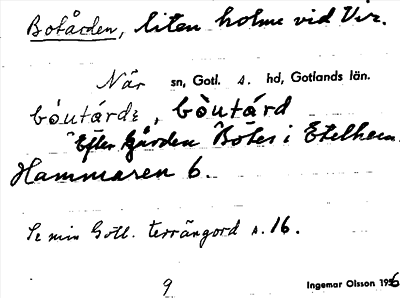 Botården, liten holme vid Vir.
När sn, Gotl. s. hd, Gotlands län.
bòutárdɛ, bòutárd
Efter gården Botes i Etelhem.
Hammaren 6.
Se min Gotl. terrängord s. 16.
9 Ingemar Olsson 1956